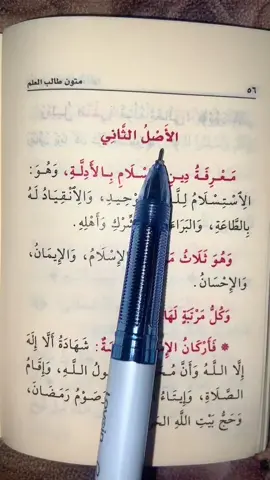 ٥٦ متون طالب العلم
الأَصْلُ الثَّانِي
مَعْرِفَةُ دِينِ بِالأَدِلَّةِ، وَهُوَ:
الِاسْتِسْلَامُ وَالِانْقِيَادُ لَهُ
بِالطَّاعَةِ، وَأَهْلِهِ.
وَهُوَ ثَلَاثُ الإِسْلَامُ، وَالإِيمَانُ،
وَالإِحْسَانُ.
وَكُلُّ مَرْتَبَةٍ
* فَأَرْكَانُ شَهَادَةُ أَلَّا إِلَهَ
إِلَّا اللَّهُ وَأَنَّ اللَّهِ، وَإِقَامُ
الصَّلَاةِ، وَإِيتَاءُ وَصَوْمُ رَمَضَانَ،
وَحَجُّ بَيْتِ اللَّهِ